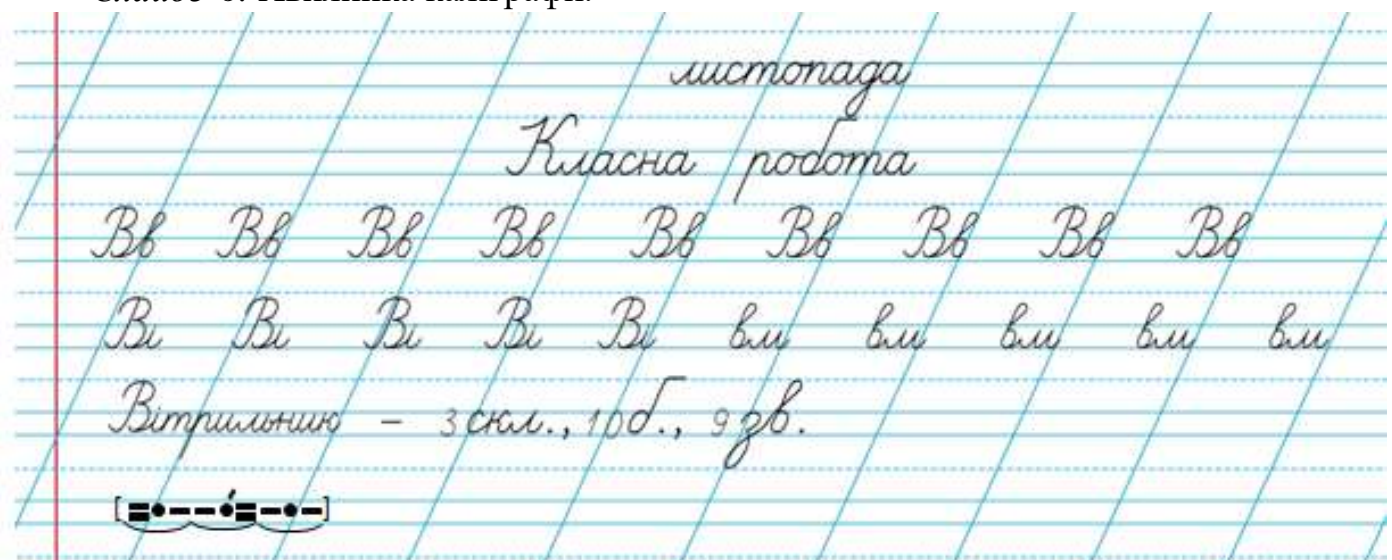 листопада
Класна робота
Вв Вв Вв Вв Вв Вв Вв Вв Вв
Ві Ві Ві Ві Ві вм вм вм вм вм
Вітрильник – 3 скл., 10 б., 9 зв.